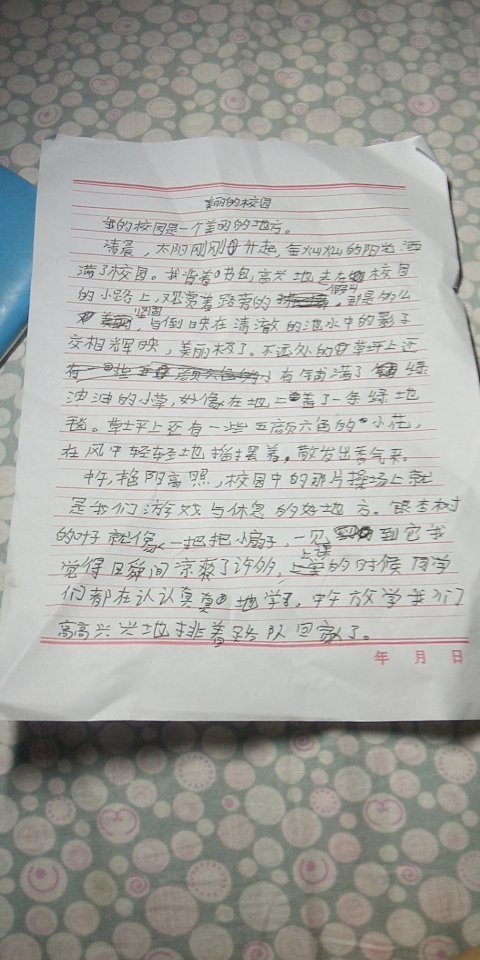 美丽的校园
我的校园是一个美丽的地方。
清晨，太阳刚刚升起，金灿灿的阳光洒
满了校园。我背着书包，高兴地走在校园
的小路上，观赏着路旁的假山，那是多么
坚固，与倒映在清澈的池水中的影子
交相辉映，美丽极了。不远处的草坪上还
有铺满了绿
油油的小草，好像在地上着了一层绿地
毯。草坪上还有一些五颜六色的小花，
在风中轻轻地摇摆着，散发出香气来。
中午，艳阳高照，校园中的那片操场上就
是我们游戏与休息的好地方。银杏树
的叶子就像一把把小扇子，一见到它我
觉得日瞬间凉爽了许多，上课的时候同学
们都在认认真真地学习。中午放学我们
高高兴兴地排着路队回家了。
年 月 日